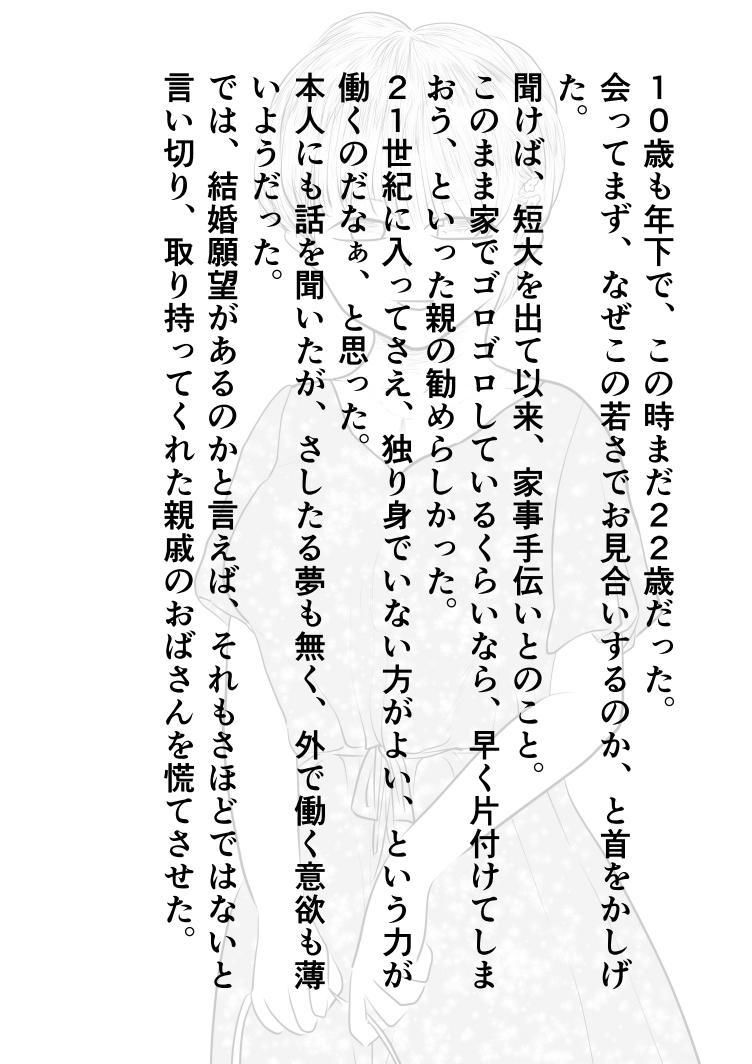 １０歳も年下で、この時まだ２２歳だった。
会ってまず、なぜこの若さでお見合いするのか、と首をかしげ
た。
聞けば、短大を出て以来、家事手伝いとのこと。
このまま家でゴロゴロしているくらいなら、早く片付けてしま
おう、といった親の勧めらしかった。
２１世紀に入ってさえ、独り身でいない方がよい、という力が
働くのだなぁ、と思った。
本人にも話を聞いたが、さしたる夢も無く、外で働く意欲も薄
いようだった。
では、結婚願望があるのかと言えば、それもさほどではないと
言い切り、取り持ってくれた親戚のおばさんを慌てさせた。